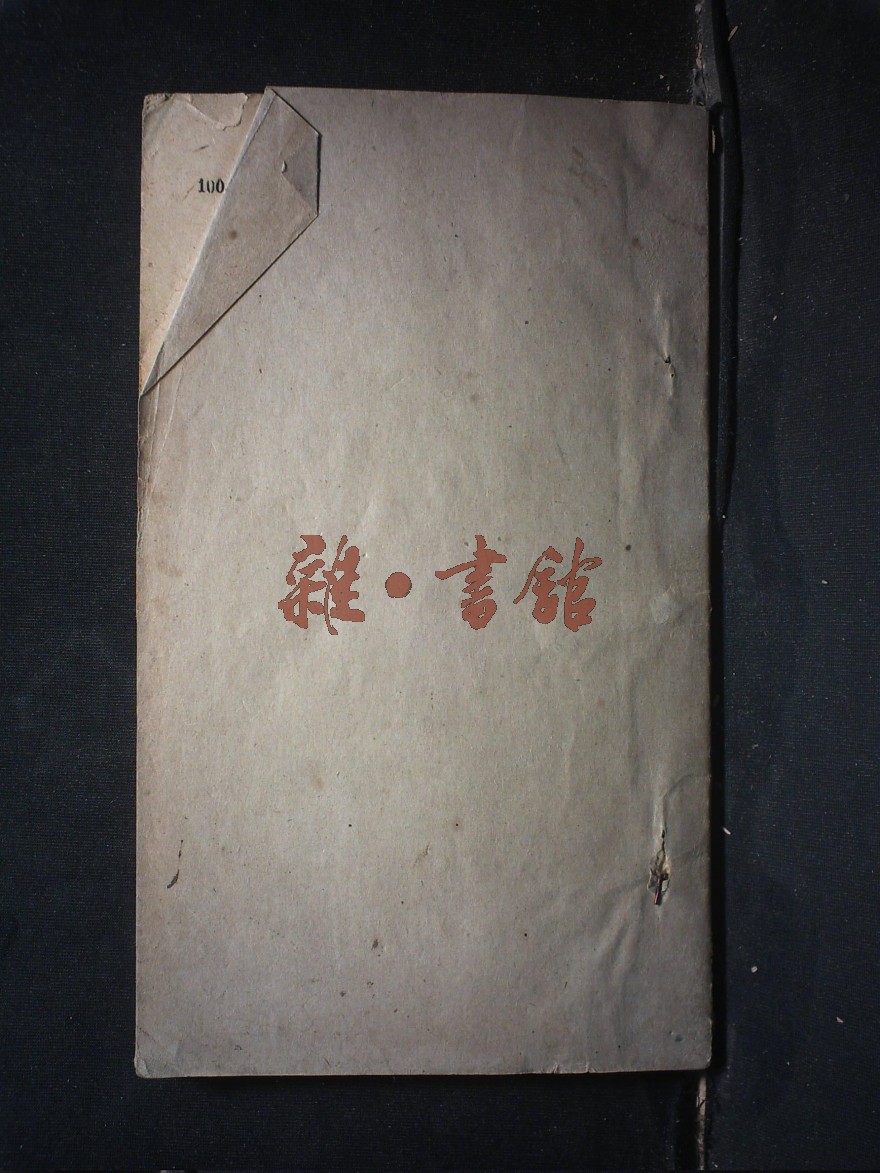 100
雜·書館